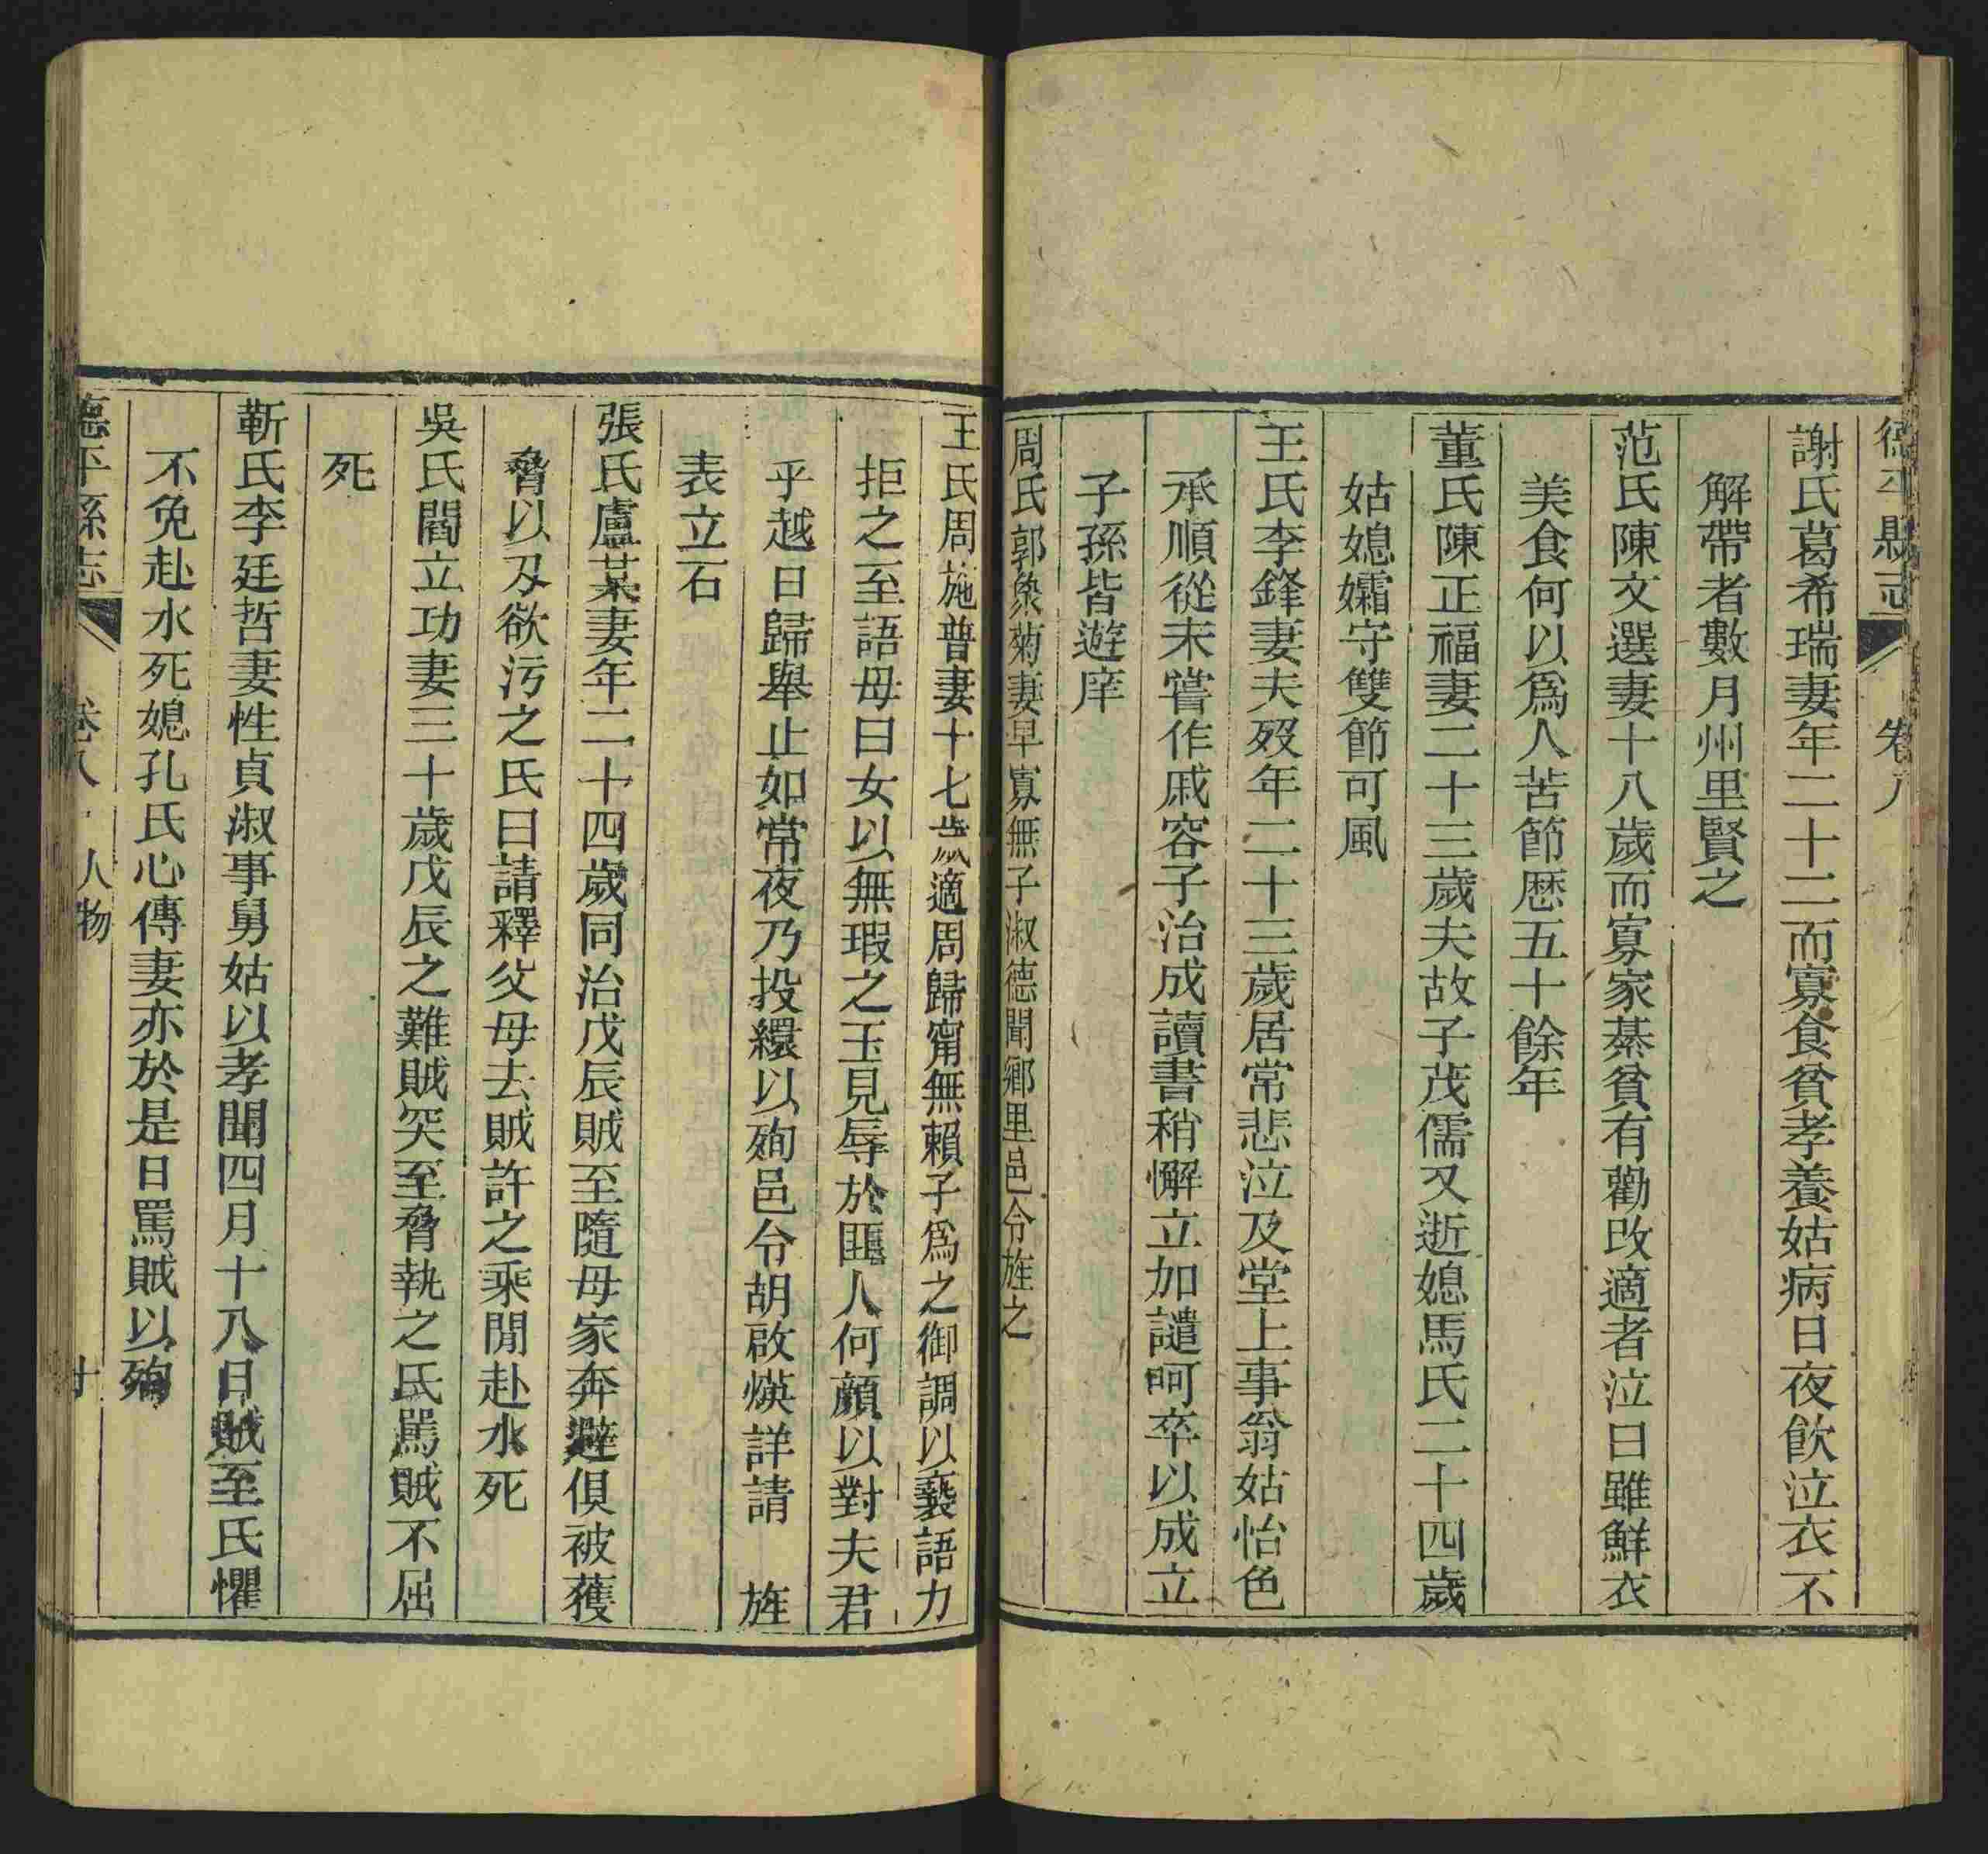 德平縣志 卷八
謝氏葛希瑞妻年二十二而寡食貧孝養姑病日夜飲泣衣不
解帶者數月州里賢之
范氏陳文選妻十八歲而寡家綦貧有勸改適者泣曰雖鮮衣
美食何以爲人苦節歷五十餘年
董氏陳正福妻二十三歲夫故子茂儒又逝媳馬氏二十四歲
姑媳孀守雙節可風
王氏李鋒妻夫歿年二十三歲居常悲泣及堂上事翁姑怡色
承順從未嘗作戚容子治成讀書稍懈立加譴呵卒以成立
子孫皆遊庠
周氏郭象菊妻早寡無子淑德聞鄉里邑令旌之
王氏周施普妻十七歲適周歸甯無賴子爲之御調以褻語力
拒之至語母曰女以無瑕之玉見辱於匪人何顔以對夫君
乎越日歸舉止如常夜乃投繯以殉邑令胡啟煐詳請 旌
表立石
張氏盧某妻年二十四歲同治戊辰賊至隨母家奔避俱被獲
脅以刃欲污之氏曰請釋父母去賊許之乘閒赴水死
吳氏閻立功妻三十歲戊辰之難賊突至脅執之氏罵賊不屈
死
靳氏李廷哲妻性貞淑事舅姑以孝聞四月十八日賊至氏懼
不免赴水死媳孔氏心傳妻亦於是日罵賊以殉
德平縣志 卷八 人物 廿